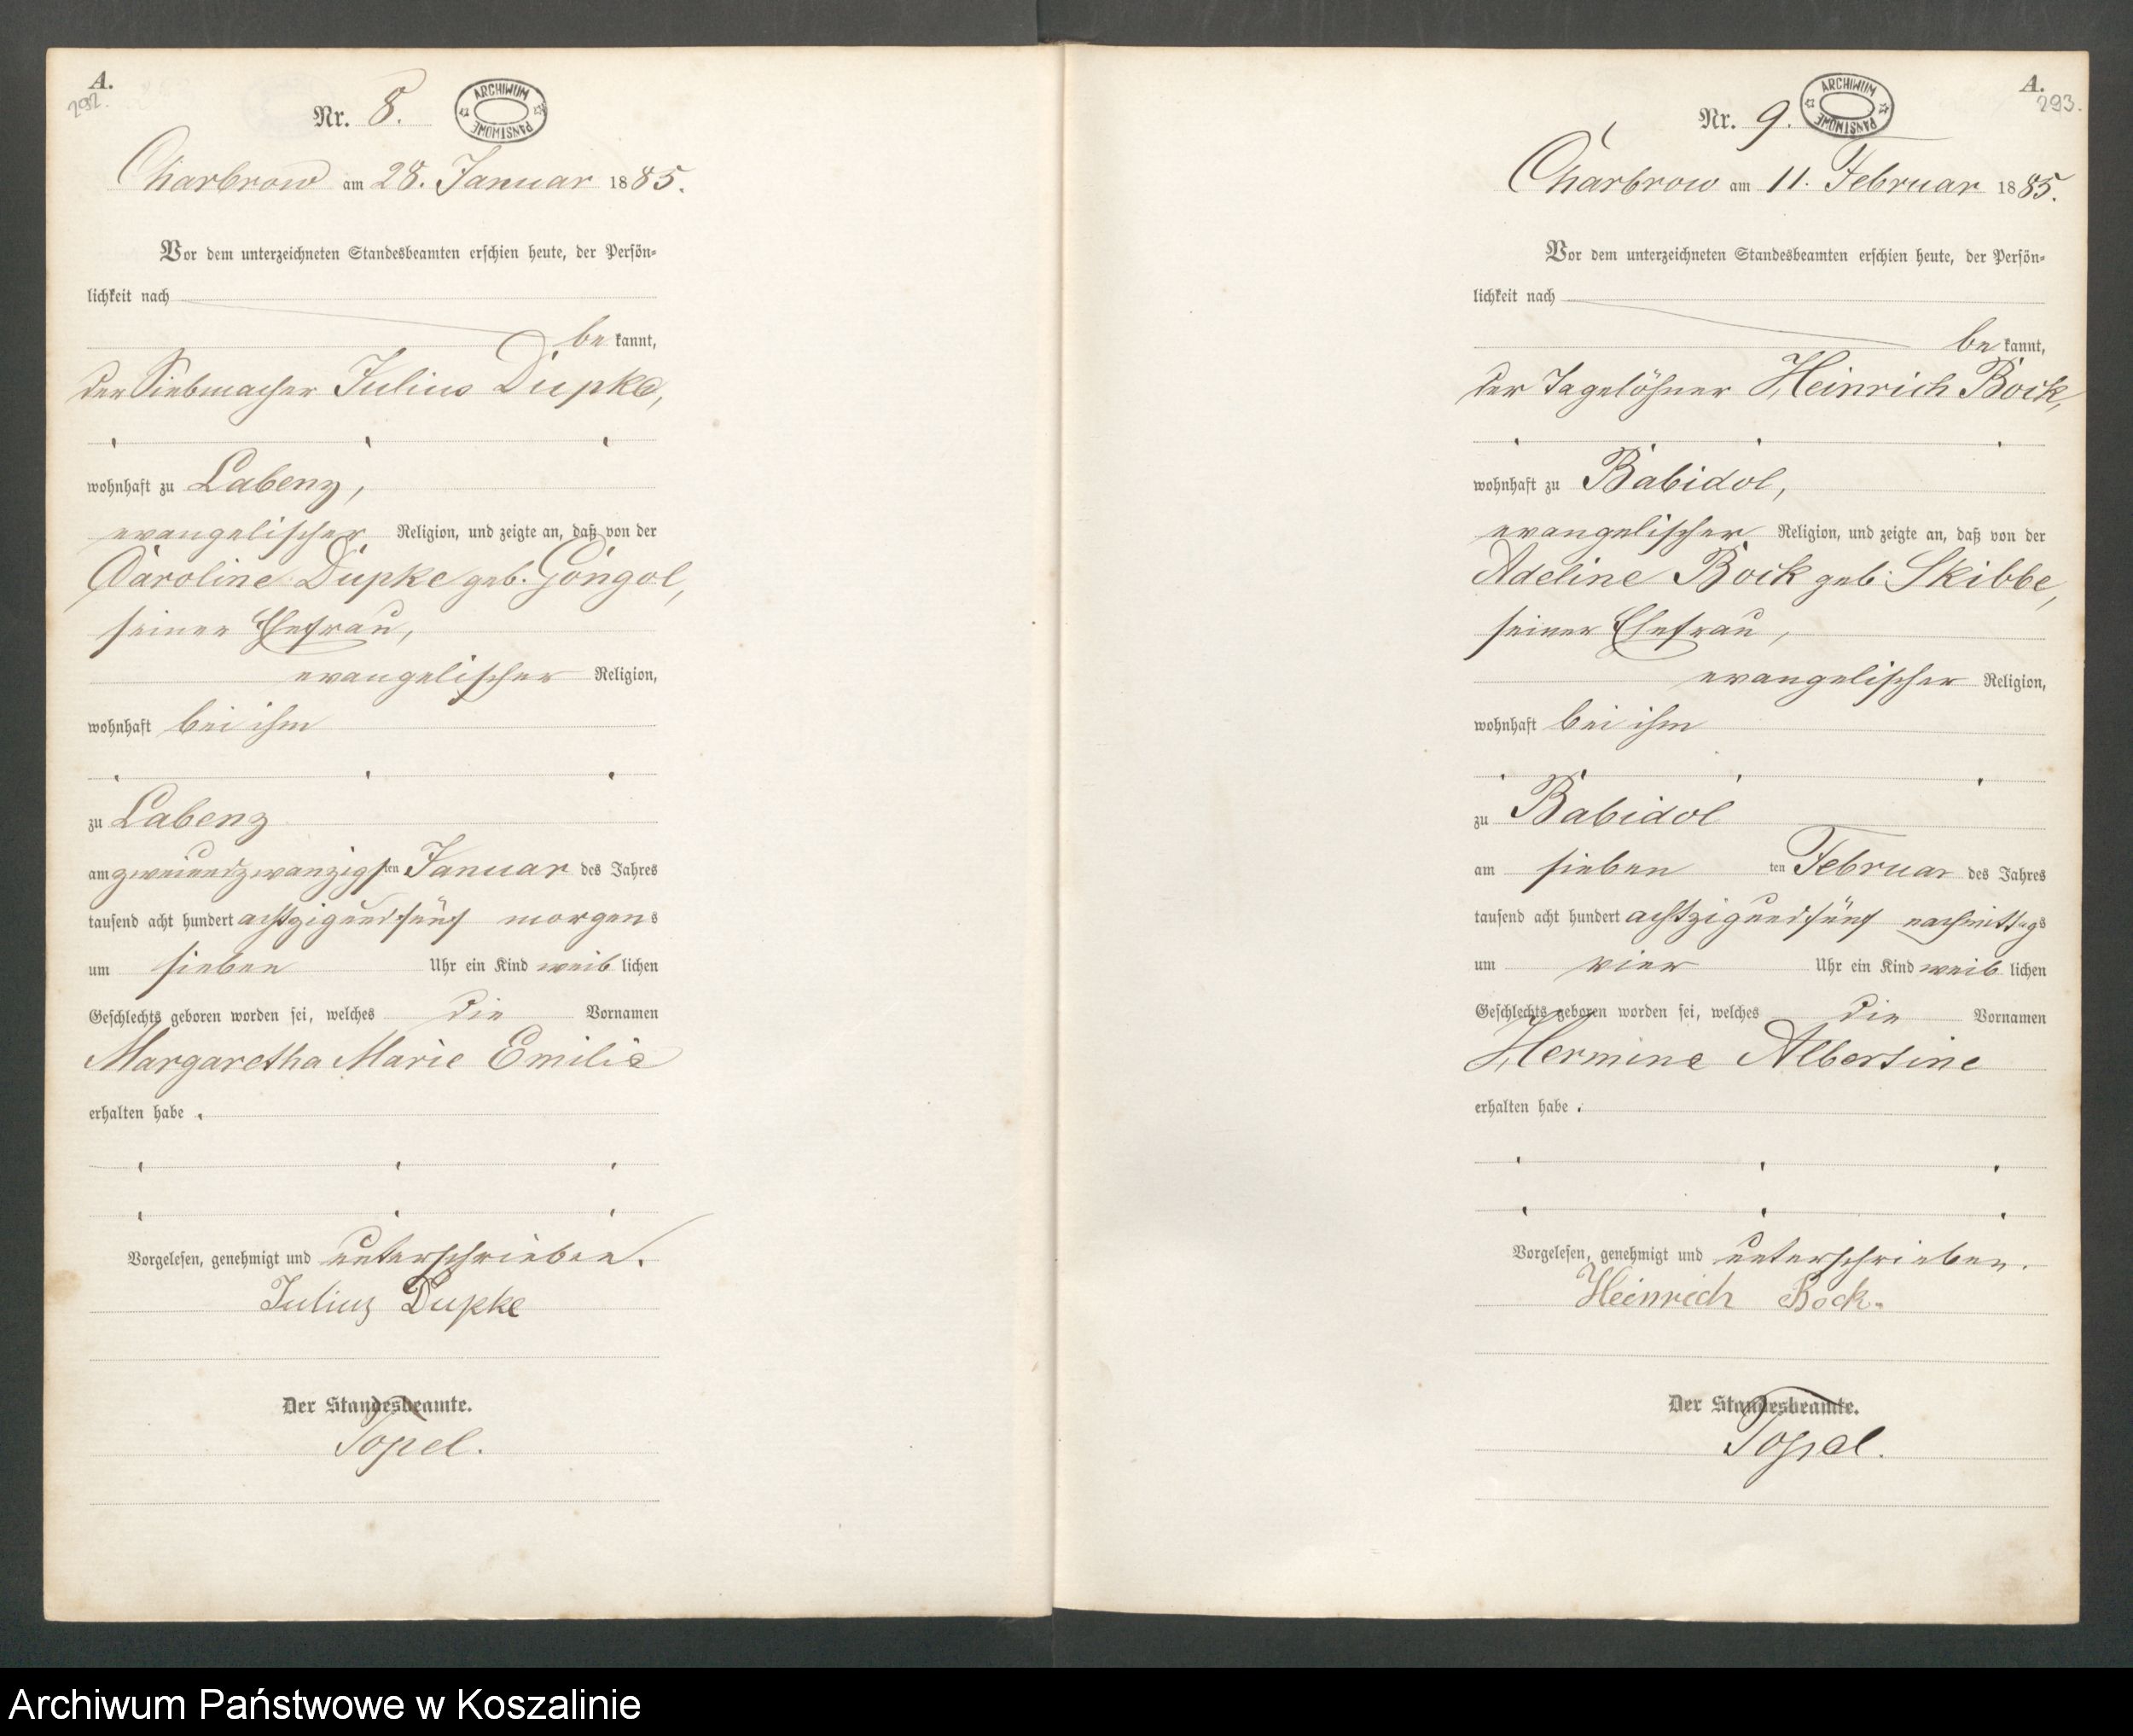 A.
292.
Nr. 8.
ARCHIWUM PAŃSTWOWE
Charbrow am 28. Januar 1885.
Vor dem unterzeichneten Standesbeamten erschien heute, der Persön-
lichkeit nach
be kannt,
der Siebmacher Julius Dupke,
wohnhaft zu Labenz,
evangelischer Religion, und zeigte an, daß von der
Caroline Dupke geb. Gongol,
seiner Ehefrau,
evangelischer Religion,
wohnhaft bei ihm
zu Labenz
am zweiundzwanzigsten Januar des Jahres
tausend acht hundert achtzigundfünf morgens
um sieben Uhr ein Kind weiblichen
Geschlechts geboren worden sei, welches die Vornamen
Margaretha Marie Emilie
erhalten habe.
Vorgelesen, genehmigt und unterschrieben.
Julius Dupke
Der Standesbeamte.
Topel.
A.
293.
Nr. 9.
ARCHIWUM PAŃSTWOWE
Charbrow am 11. Februar 1885.
Vor dem unterzeichneten Standesbeamten erschien heute, der Persön-
lichkeit nach
be kannt,
der Tagelöhner Heinrich Bock,
wohnhaft zu Babidol,
evangelischer Religion, und zeigte an, daß von der
Adeline Bock geb. Skibbe,
seiner Ehefrau,
evangelischer Religion,
wohnhaft bei ihm
zu Babidol
am sieben ten Februar des Jahres
tausend acht hundert achtzigundfünf nachmittags
um vier Uhr ein Kind weiblichen
Geschlechts geboren worden sei, welches die Vornamen
Hermine Albertine
erhalten habe.
Vorgelesen, genehmigt und unterschrieben.
Heinrich Bock.
Der Standesbeamte.
Topel.
Archiwum Państwowe w Koszalinie